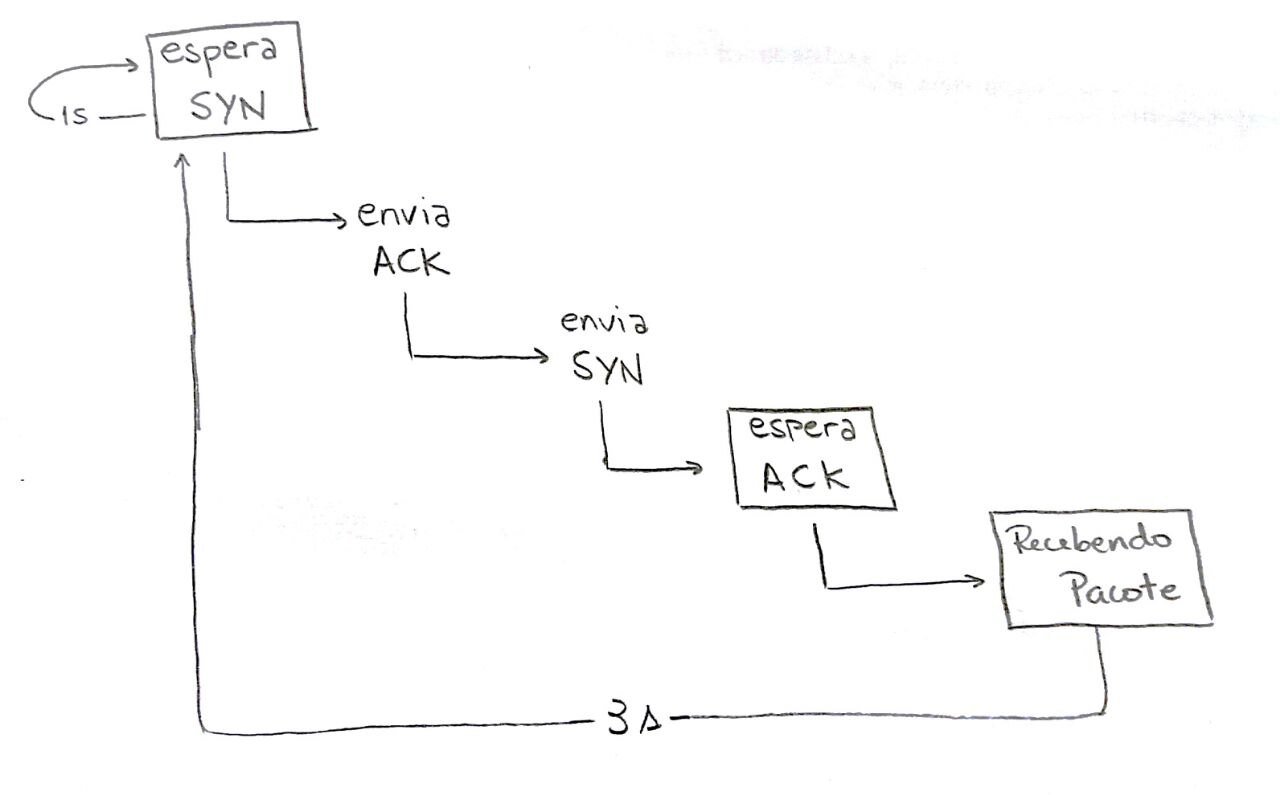 espera
SYN
1s
envia
ACK
envia
SYN
espera
ACK
Recebendo
Pacote
3s